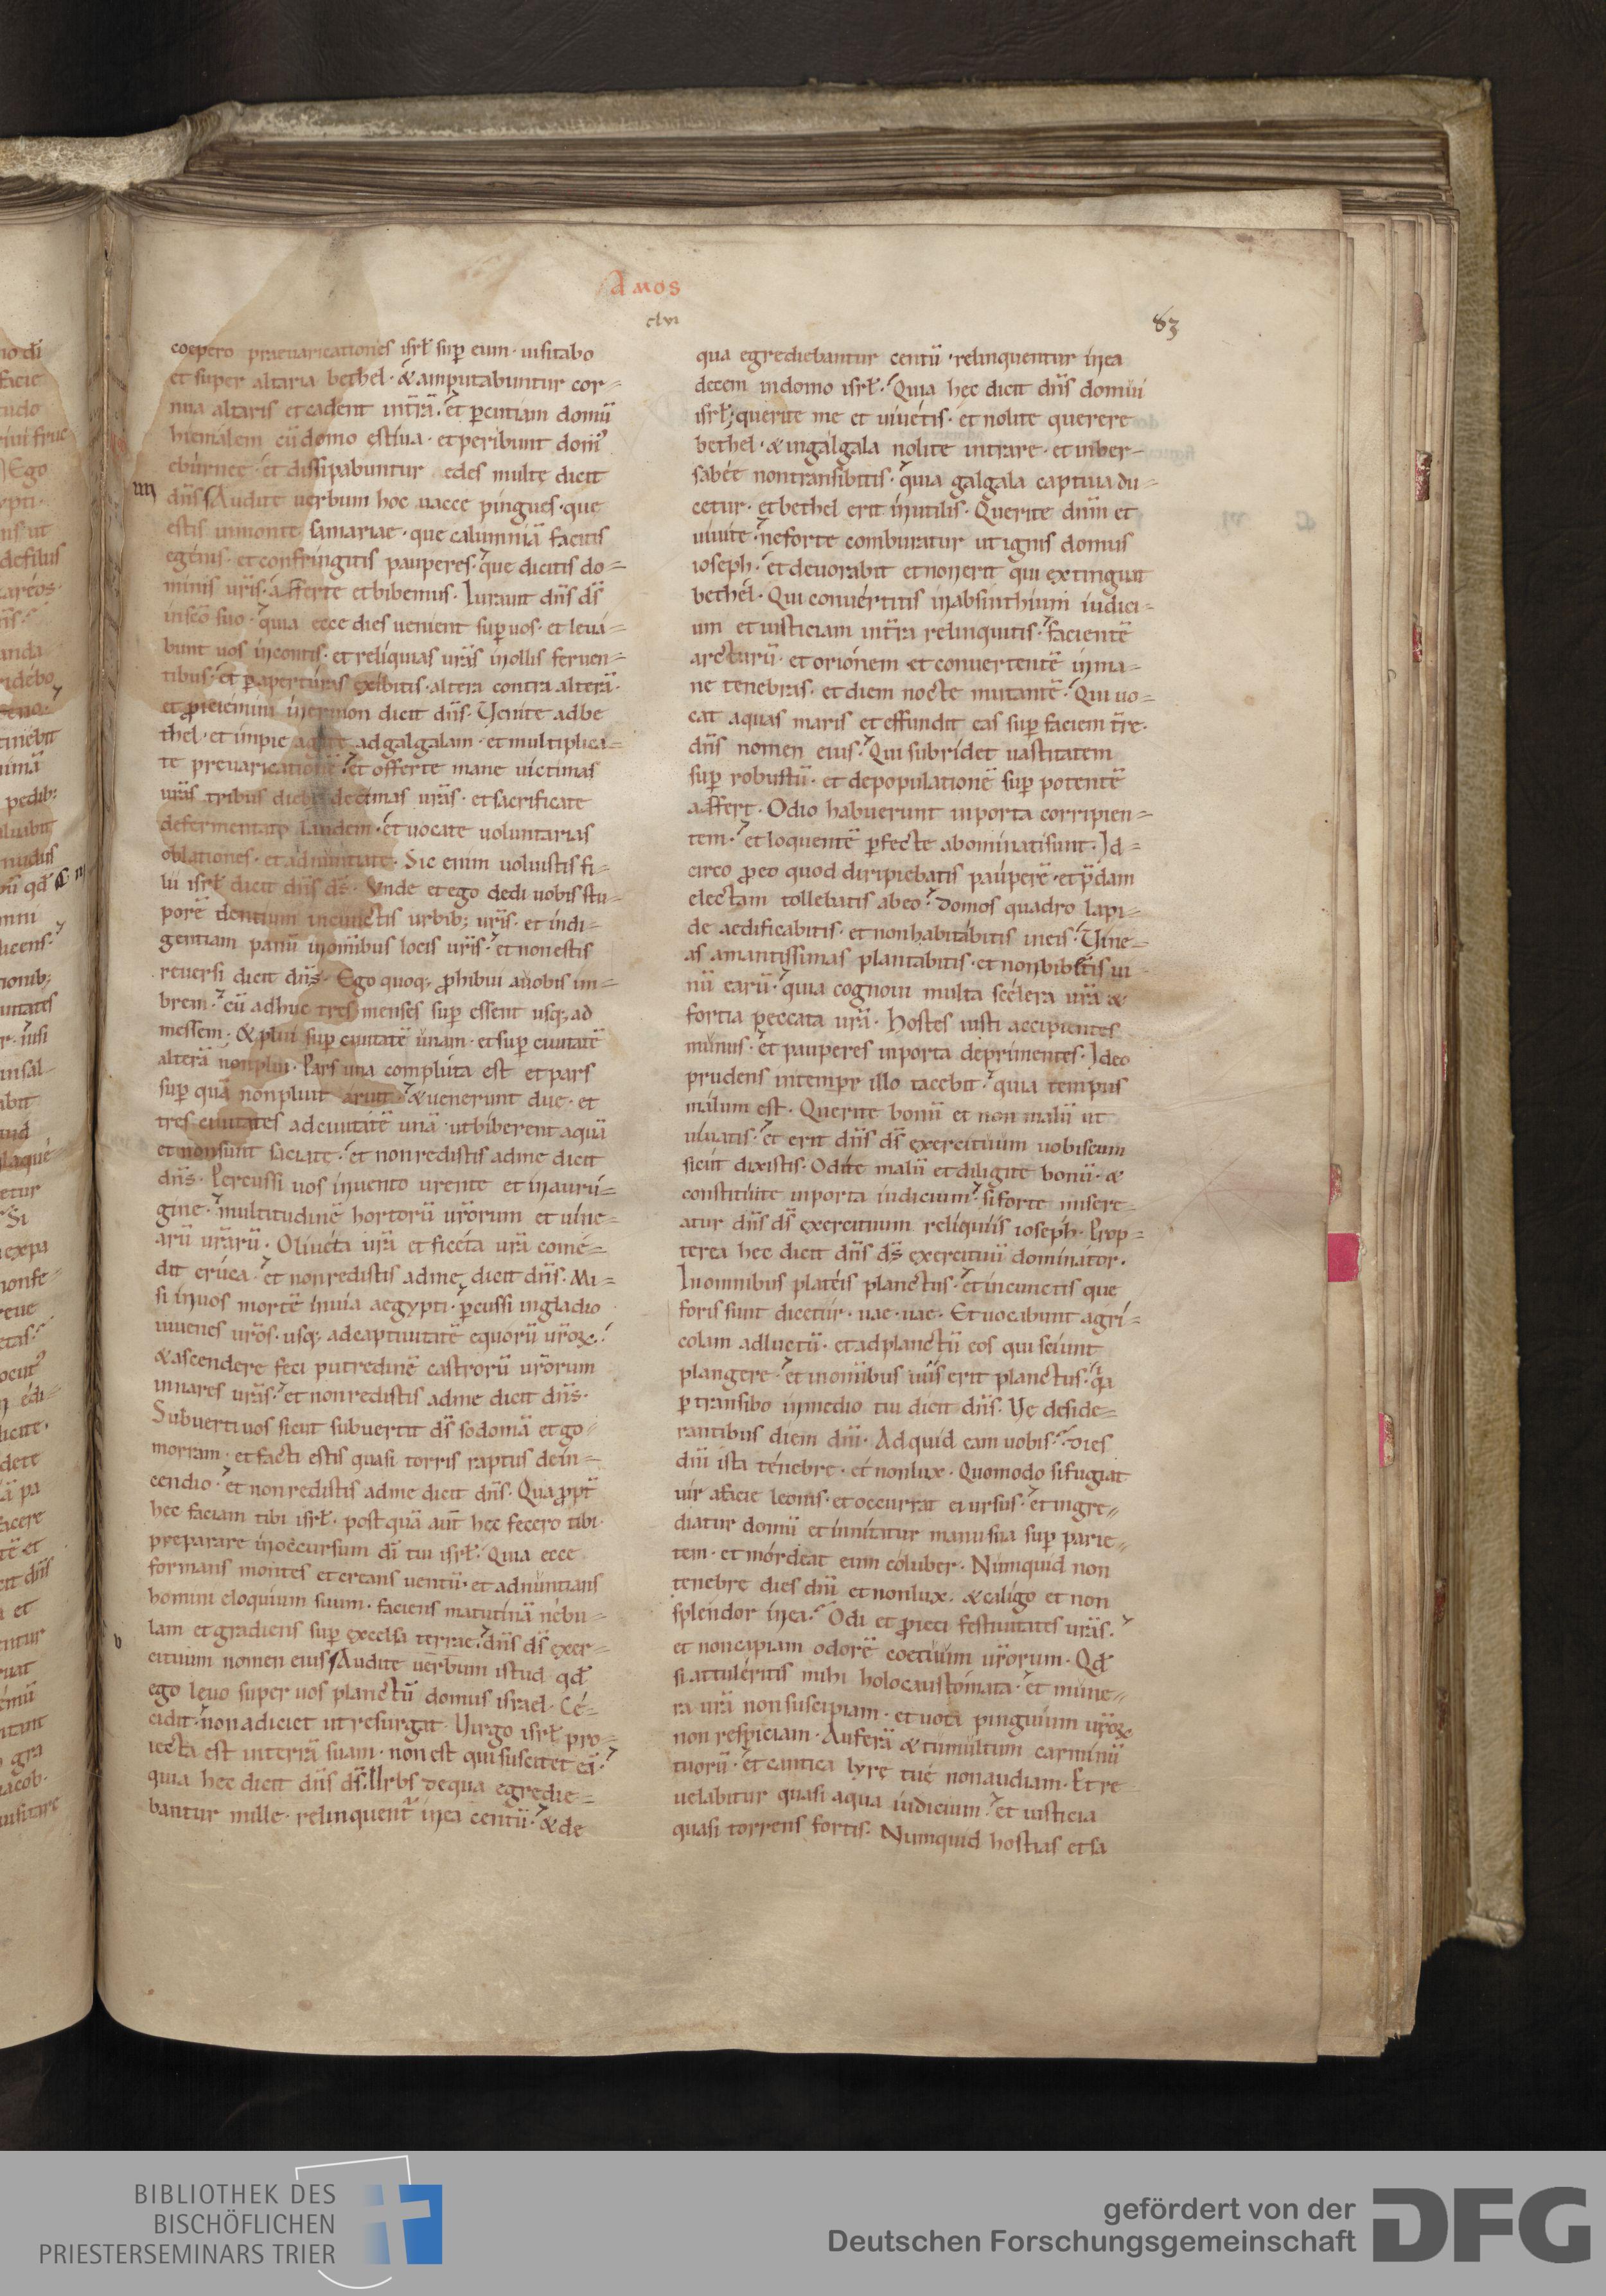 Amos
clvi
83
coepero praeuaricationes isrł sup eum · uisitabo
et super altaria bethel · & amputabuntur cor=
nua altaris et cadent in tr̄ā · et ꝑcutiam domū
hiemalem cū domo estiua · et peribunt dom᷒
eburnee · et dissipabuntur edes multę dicit
IIII
dn̄s Audite uerbum hoc uacce pingues · que
estis in monte samariae · que calumniā facitis
egenis · et confringitis pauperes · que dicitis do=
minis ur̄is · afferte et bibemus · Iurauit dn̄s ds̄
in scō suo · quia ecce dies uenient sup uos · et leua=
bunt uos in contis · et reliquias ur̄as in ollis feruen=
tibus · et ꝑ aperturas exibitis · altera contra alterā ·
et ꝓiciemini in ermon dicit dn̄s · Uenite ad be
thel · et impie agite ad galgalam · et multiplica=
te preuaricationē · et offerte mane uictimas
ur̄as tribus diebꝫ decimas ur̄as · et sacrificate
de fermentato laudem · et uocate uoluntarias
oblationes · et adnuntiate · Sic enim uoluistis fi=
lii isrł dicit dn̄s ds̄ · Unde et ego dedi uobis stu=
porē dentium in cunctis urbibꝫ ur̄is · et indi=
gentiam panū in omībus locis ur̄is · et non estis
reuersi dicit dn̄s · Ego quoqꝫ ꝓhibui a uobis im=
brem · cū adhuc tres menses sup essent usqꝫ ad
messem · & plui sup ciuitatē unam · et sup ciuitatē
alterā non plui · Pars una compluta est et pars
sup quā non plui aruit · & uenerunt due · et
tres ciuitates ad ciuitatē unā · ut biberent aquā
et non sunt saciate · et non redistis ad me dicit
dn̄s · Percussi uos in uento urente et in auru=
gine · multitudinē hortorū ur̄orum et uine=
arū ur̄arū · Oliueta ur̄a et ficeta ur̄a come=
dit eruca · et non redistis ad me dicit dn̄s · Mi=
si in uos mortē in uia aegypti · ꝑcussi in gladio
iuuenes ur̄os · usqꝫ ad captiuitatē equorū ur̄oꝝ ·
& ascendere feci putredinē castrorū ur̄orum
in nares ur̄as · et non redistis ad me dicit dn̄s ·
Subuerti uos sicut subuertit ds̄ sodomā et go=
morram · et facti estis quasi torris raptus de in=
cendio · et non redistis ad me dicit dn̄s · Quapropt̄
hec faciam tibi isrł · post quā aūt hec fecero tibi ·
preparare in occursum dī tui isrł · Quia ecce
formans montes et creans uentū · et adnuntians
homini eloquium suum · faciens matutinā nebu=
lam et gradiens sup excelsa terrae · dn̄s ds̄ exer=
V
cituum nomen eius Audite uerbum istud qđ
ego leuo super uos planctū domus israel · Ce=
cidit · non adiciet ut resurgat · Uirgo isrł pro=
iecta est in terrā suam · non est qui suscitet eā ·
quia hec dicit dn̄s ds̄ · Urbs de qua egredie=
bantur mille · relinquent̄ in ea centū · & de
qua egrediebantur centū · relinquentur in ea
decem in domo isrł · Quia hec dicit dn̄s domui
isrł; querite me et uiuetis · et nolite querere
bethel · & in galgala nolite intrare · et in ber=
sabee non transibitis · quia galgala captiua du=
cetur · et bethel erit inutilis · Querite dnm̄ et
uiuite · ne forte comburatur ut ignis domus
ioseph · et deuorabit et non erit qui extinguat
bethel · Qui conuertitis in absinthium iudici=
um et iusticiam in tr̄a relinquitis · facientē
arcturū · et orionem et conuertentē in ma=
ne tenebras · et diem nocte mutantē · Qui uo=
cat aquas maris et effundit eas sup faciem tr̄e ·
dn̄s nomen eius · Qui subridet uastitatem
sup robustū · et depopulationē sup potentē
affert · Odio habuerunt in porta corripien=
tem · et loquentē ꝑfecte abominati sunt · Id=
circo ꝓ eo quod diripiebatis pauperē · et p̄dam
electam tollebatis ab eo · domos quadro lapi=
de aedificabitis · et non habitabitis in eis · Uine=
as amantissimas plantabitis · et non bibetis ui
nū earū · quia cognoui multa scelera ur̄a &
fortia peccata ur̄a · Hostes iusti accipientes
munus · et pauperes in porta deprimentes · Ideo
prudens in tempr̄ illo tacebit · quia tempus
malum est · Querite bonū et non malū ut
uiuatis · et erit dn̄s ds̄ exercituum uobiscum
sicut dixistis · Odite malū et diligite bonū · &
constituite in porta iudicium · si forte misere=
atur dn̄s ds̄ exercituum reliquiis ioseph · Prop=
terea hec dicit dn̄s ds̄ exercituū dominator ·
In omnibus plateis planctus · et in cunctis que
foris sunt dicetur · uae · uae · Et uocabunt agri=
colam ad luctū · et ad planctū eos qui sciunt
plangere · et in omībus uiis erit planctus · qa
ꝑ transibo in medio tui dicit dn̄s · Uę deside=
rantibus diem dn̄i · Ad quid eam uobis · dies
dn̄i ista tenebre · et non lux · Quomodo si fugiat
uir a facie leonis · et occurrat ei ursus · et ingre=
diatur domū et innitatur manu sua sup parie=
tem · et mordeat eum coluber · Numquid non
tenebrę dies dn̄i et non lux · & caligo et non
splendor in ea · Odi et ꝓieci festiuitates ur̄as ·
et non capiam odorē coetuum ur̄orum · Qđ
si attuleritis mihi holocaustomata · et mune=
ra ur̄a non suscipiam · et uota pinguium ur̄oꝝ
non respiciam · Auferā & tumultum carminū
tuorū · et cantica lyrę tuę non audiam · Et re
uelabitur quasi aqua iudicium · et iusticia
quasi torrens fortis · Numquid hostias et sa
BIBLIOTHEK DES
BISCHÖFLICHEN
PRIESTERSEMINARS TRIER
gefördert von der
Deutschen Forschungsgemeinschaft
DFG